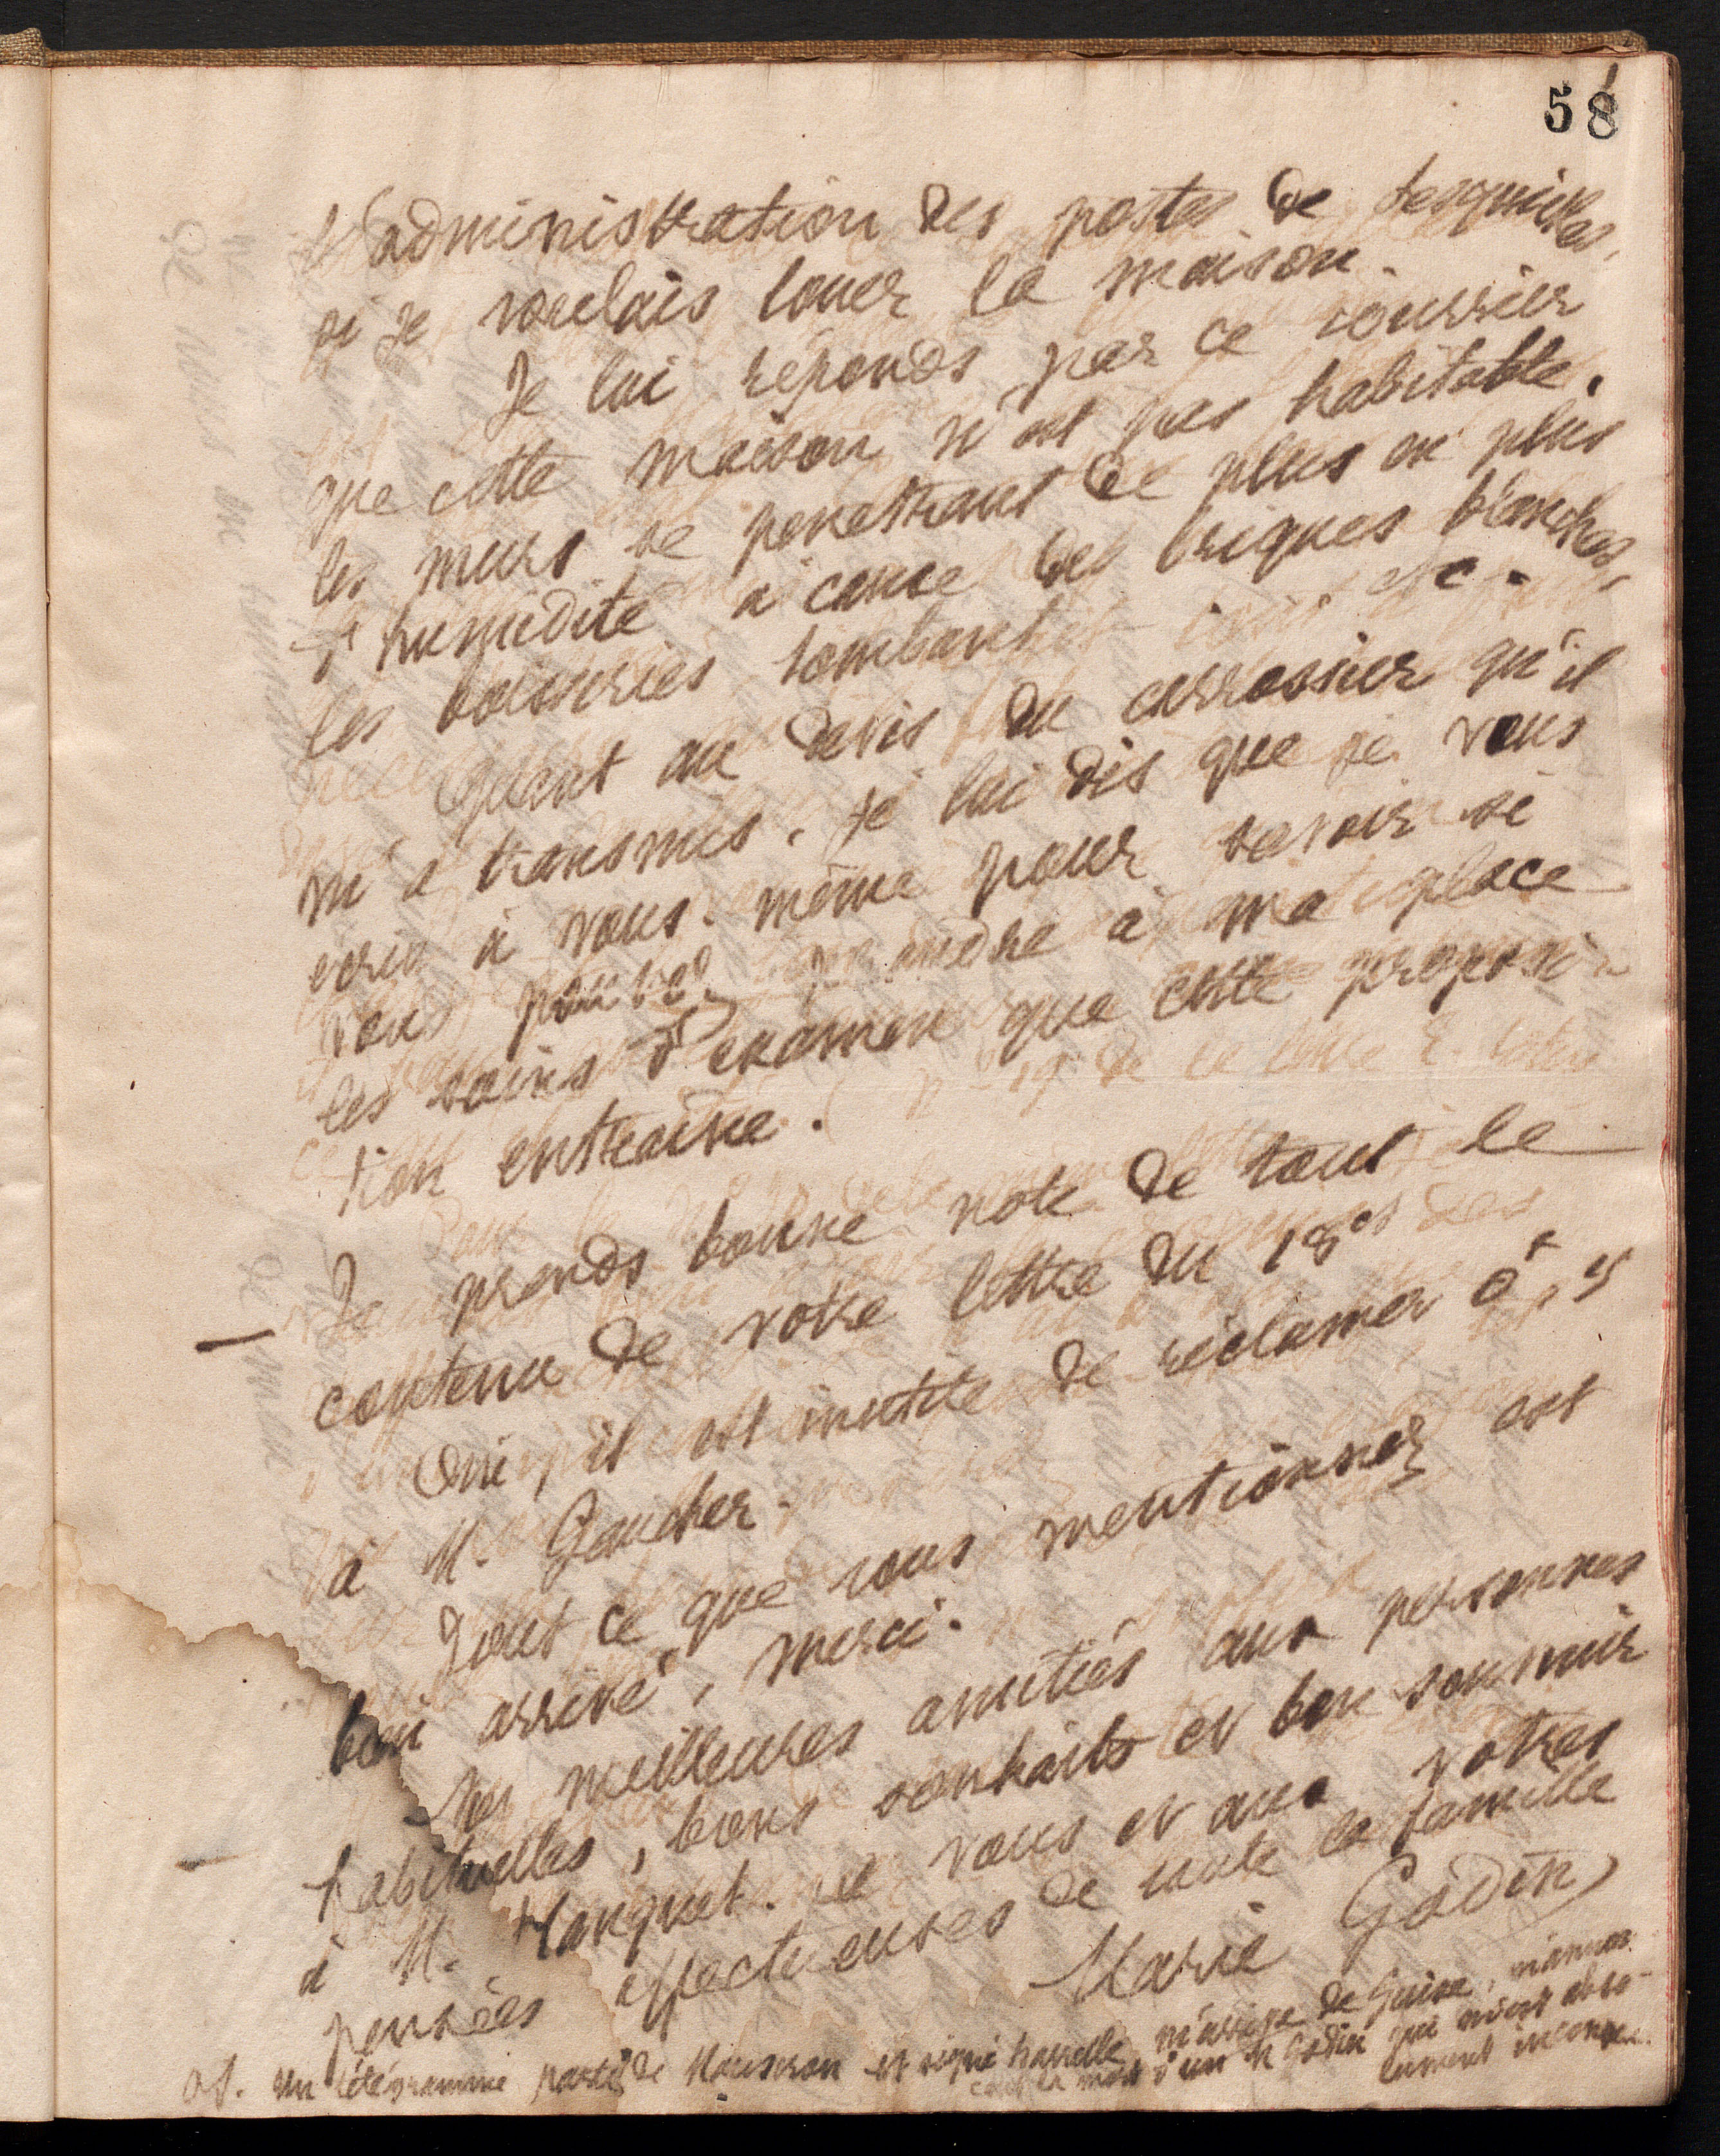 58
l'administration des postes de Lesquielles,
si je voulais louer la maison.
Je lui réponds par ce courrier
que cette maison n'est pas habitable,
les murs se penetrant de plus en plus
d'humidité à cause des briques blanches,
les boiseries tombant etc.
Quant au devis du carrossier qu'il
m'a transmis, je lui dis que je vous
écris à vous-même pour savoir si
vous pouvez prendre à ma place
les soins d'examen que cette proposi-
tion entraîne.
— Je prends bonne note de tout le
contenu de votre lettre du 18 ct
Oui, il est inutile de réclamer 0f,15
à M. Gaucher.
Tout ce que vous mentionnez est
bien arrivé, merci.
Nos meilleures amitiés aux personnes
habituelles, bons souhaits et bon souvenir
à M. Hanquet. à vous et aux vôtres
pensées affectueuses de toute la famille
Marie Godin
Un télégramme parti de Mouscron et signé m'arrive de Guise, m'annon-
çant la mort d'un M Godin qui m'est abso-
lument inconnu.